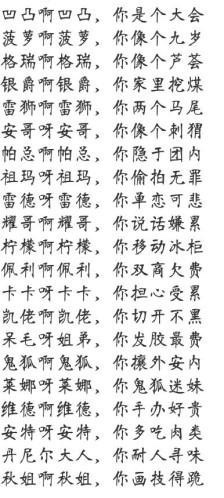 凹凸啊凹凸，你是个大会
菠萝啊菠萝，你像个九岁
格瑞啊格瑞，你像个芦荟
银爵啊银爵，你家里挖煤
雷狮啊雷狮，你两个马尾
安哥呀安哥，你像个刺猬
帕总啊帕总，你隐于团内
祖玛呀祖玛，你偷拍无罪
雷德呀雷德，你单恋可悲
耀哥啊耀哥，你说话嫌累
柠檬啊柠檬，你移动冰柜
佩利啊佩利，你双商欠费
卡卡呀卡卡，你担心受累
凯佬啊凯佬，你切开不黑
呆毛呀姐弟，你发胶最费
鬼狐啊鬼狐，你攘外安内
莱娜呀莱娜，你鬼狐迷妹
维德啊维德，你手办好贵
安特呀安特，你多吃肉类
丹尼尔大人，你耐人寻味
秋姐呀秋姐，你画技得跪